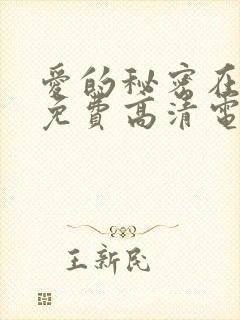 爱的秘密在
免費高清電
王新民